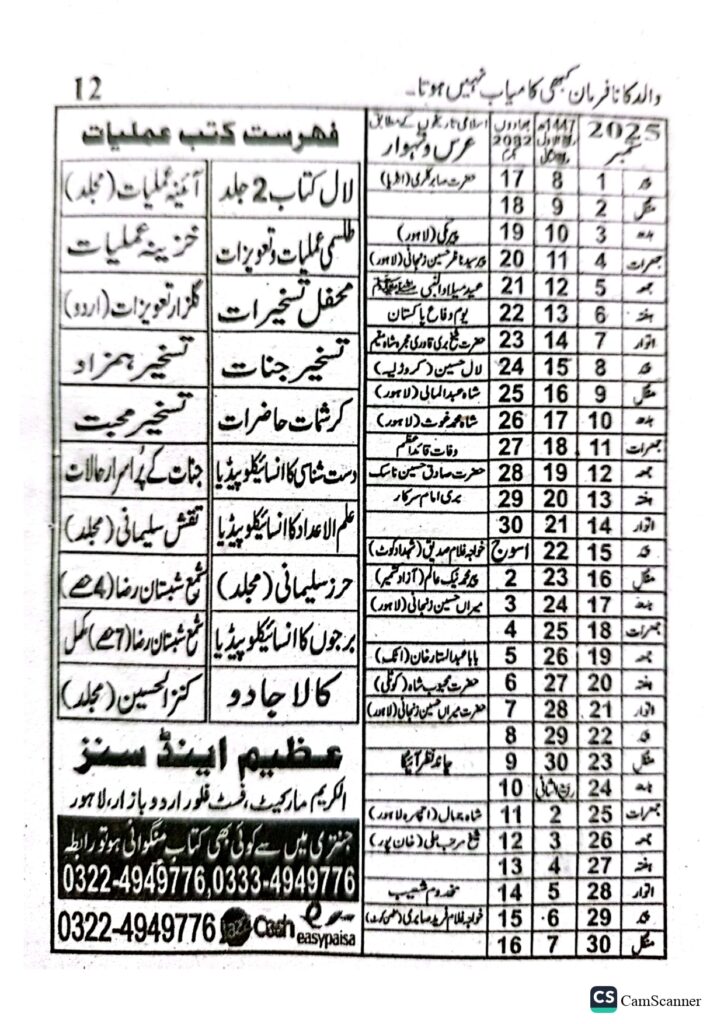 والد کا نافرمان کبھی کامیاب نہیں ہوتا۔
12
2025 ستمبر
1447ھ ربیع الاول ربیع الثانی
بھادوں 2082 بکرم
اسلامی تاریخوں کے مطابق
عرس و تہوار
پیر 1 8 17 حضرت صابر کلیری (انڈیا)
منگل 2 9 18
بدھ 3 10 19 پیر مکی (لاہور)
جمعرات 4 11 20 پیر سید ناظر حسین زنجانی (لاہور)
جمعہ 5 12 21 عید میلاد النبی ﷺ
ہفتہ 6 13 22 یوم دفاع پاکستان
اتوار 7 14 23 حضرت شیخ بری قادری حجرہ شاہ مقیم
پیر 8 15 24 لال حسین (کروڑ لیہ)
منگل 9 16 25 شاہ عبدالمالی (لاہور)
بدھ 10 17 26 شاہ محمد غوث (لاہور)
جمعرات 11 18 27 وفات قائداعظم
جمعہ 12 19 28 حضرت صادق حسین ناسک
ہفتہ 13 20 29 بری امام سرکار
اتوار 14 21 30
پیر 15 22 اسوج خواجہ غلام صدیق (شہدادکوٹ)
منگل 16 23 2 پیر محمد نیک عالم (آزاد کشمیر)
بدھ 17 24 3 میراں حسین زنجانی (لاہور)
جمعرات 18 25 4
جمعہ 19 26 5 بابا عبدالستار خان (اٹک)
ہفتہ 20 27 6 حضرت محبوب شاہ (کوٹلی)
اتوار 21 28 7 حضرت میراں حسین زنجانی (لاہور)
پیر 22 29 8
منگل 23 30 9 چاند نظر آئیگا
بدھ 24 ربیع الثانی 10
جمعرات 25 2 11 شاہ جمال (اچھرہ لاہور)
جمعہ 26 3 12 شیخ مرحب علی (خان پور)
ہفتہ 27 4 13
اتوار 28 5 14 مخدوم شعیب
پیر 29 6 15 خواجہ غلام فرید صابری (مٹھن کوٹ)
منگل 30 7 16
فہرست کتب عملیات
لال کتاب 2 جلد آئینہ عملیات (مجلد)
طلسمی عملیات و تعویزات خزینہ عملیات
محفل تسخیرات گلزار تعویزات (اردو)
تسخیر جنات تسخیر ہمزاد
کرشمات حاضرات تسخیر محبت
دست شناسی کا انسائیکلوپیڈیا جنات کے پُراسرار حالات
علم الاعداد کا انسائیکلوپیڈیا نقش سلیمانی (مجلد)
حرز سلیمانی (مجلد) شمع شبستان رضا (4 حصے)
برجوں کا انسائیکلوپیڈیا شمع شبستان رضا (7 حصے) مکمل
کالا جادو کنز الحسین (مجلد)
عظیم اینڈ سنز
الکریم مارکیٹ، فسٹ فلور اردو بازار، لاہور
جنتری میں سے کوئی بھی کتاب منگوانی ہو تو رابطہ
0322-4949776, 0333-4949776
0322-4949776 Jazz Cash easypaisa
CS CamScanner